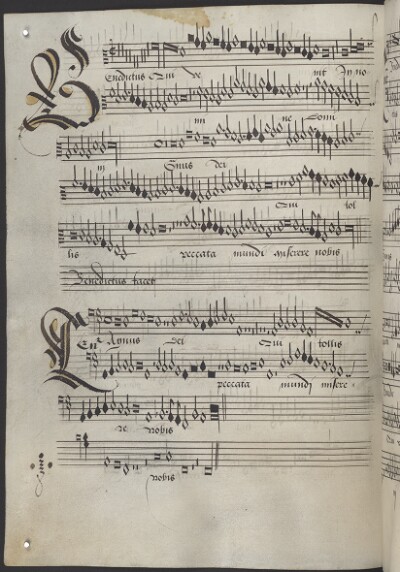 Benedictus Qui ve nit In no
mi ne Domi
ni Gnus dei
Qui tol
lis peccata mundi miserere nobis
Benedictus tacet
Agnus dei Qui tollis
peccata mundi misere
re nobis
nobis